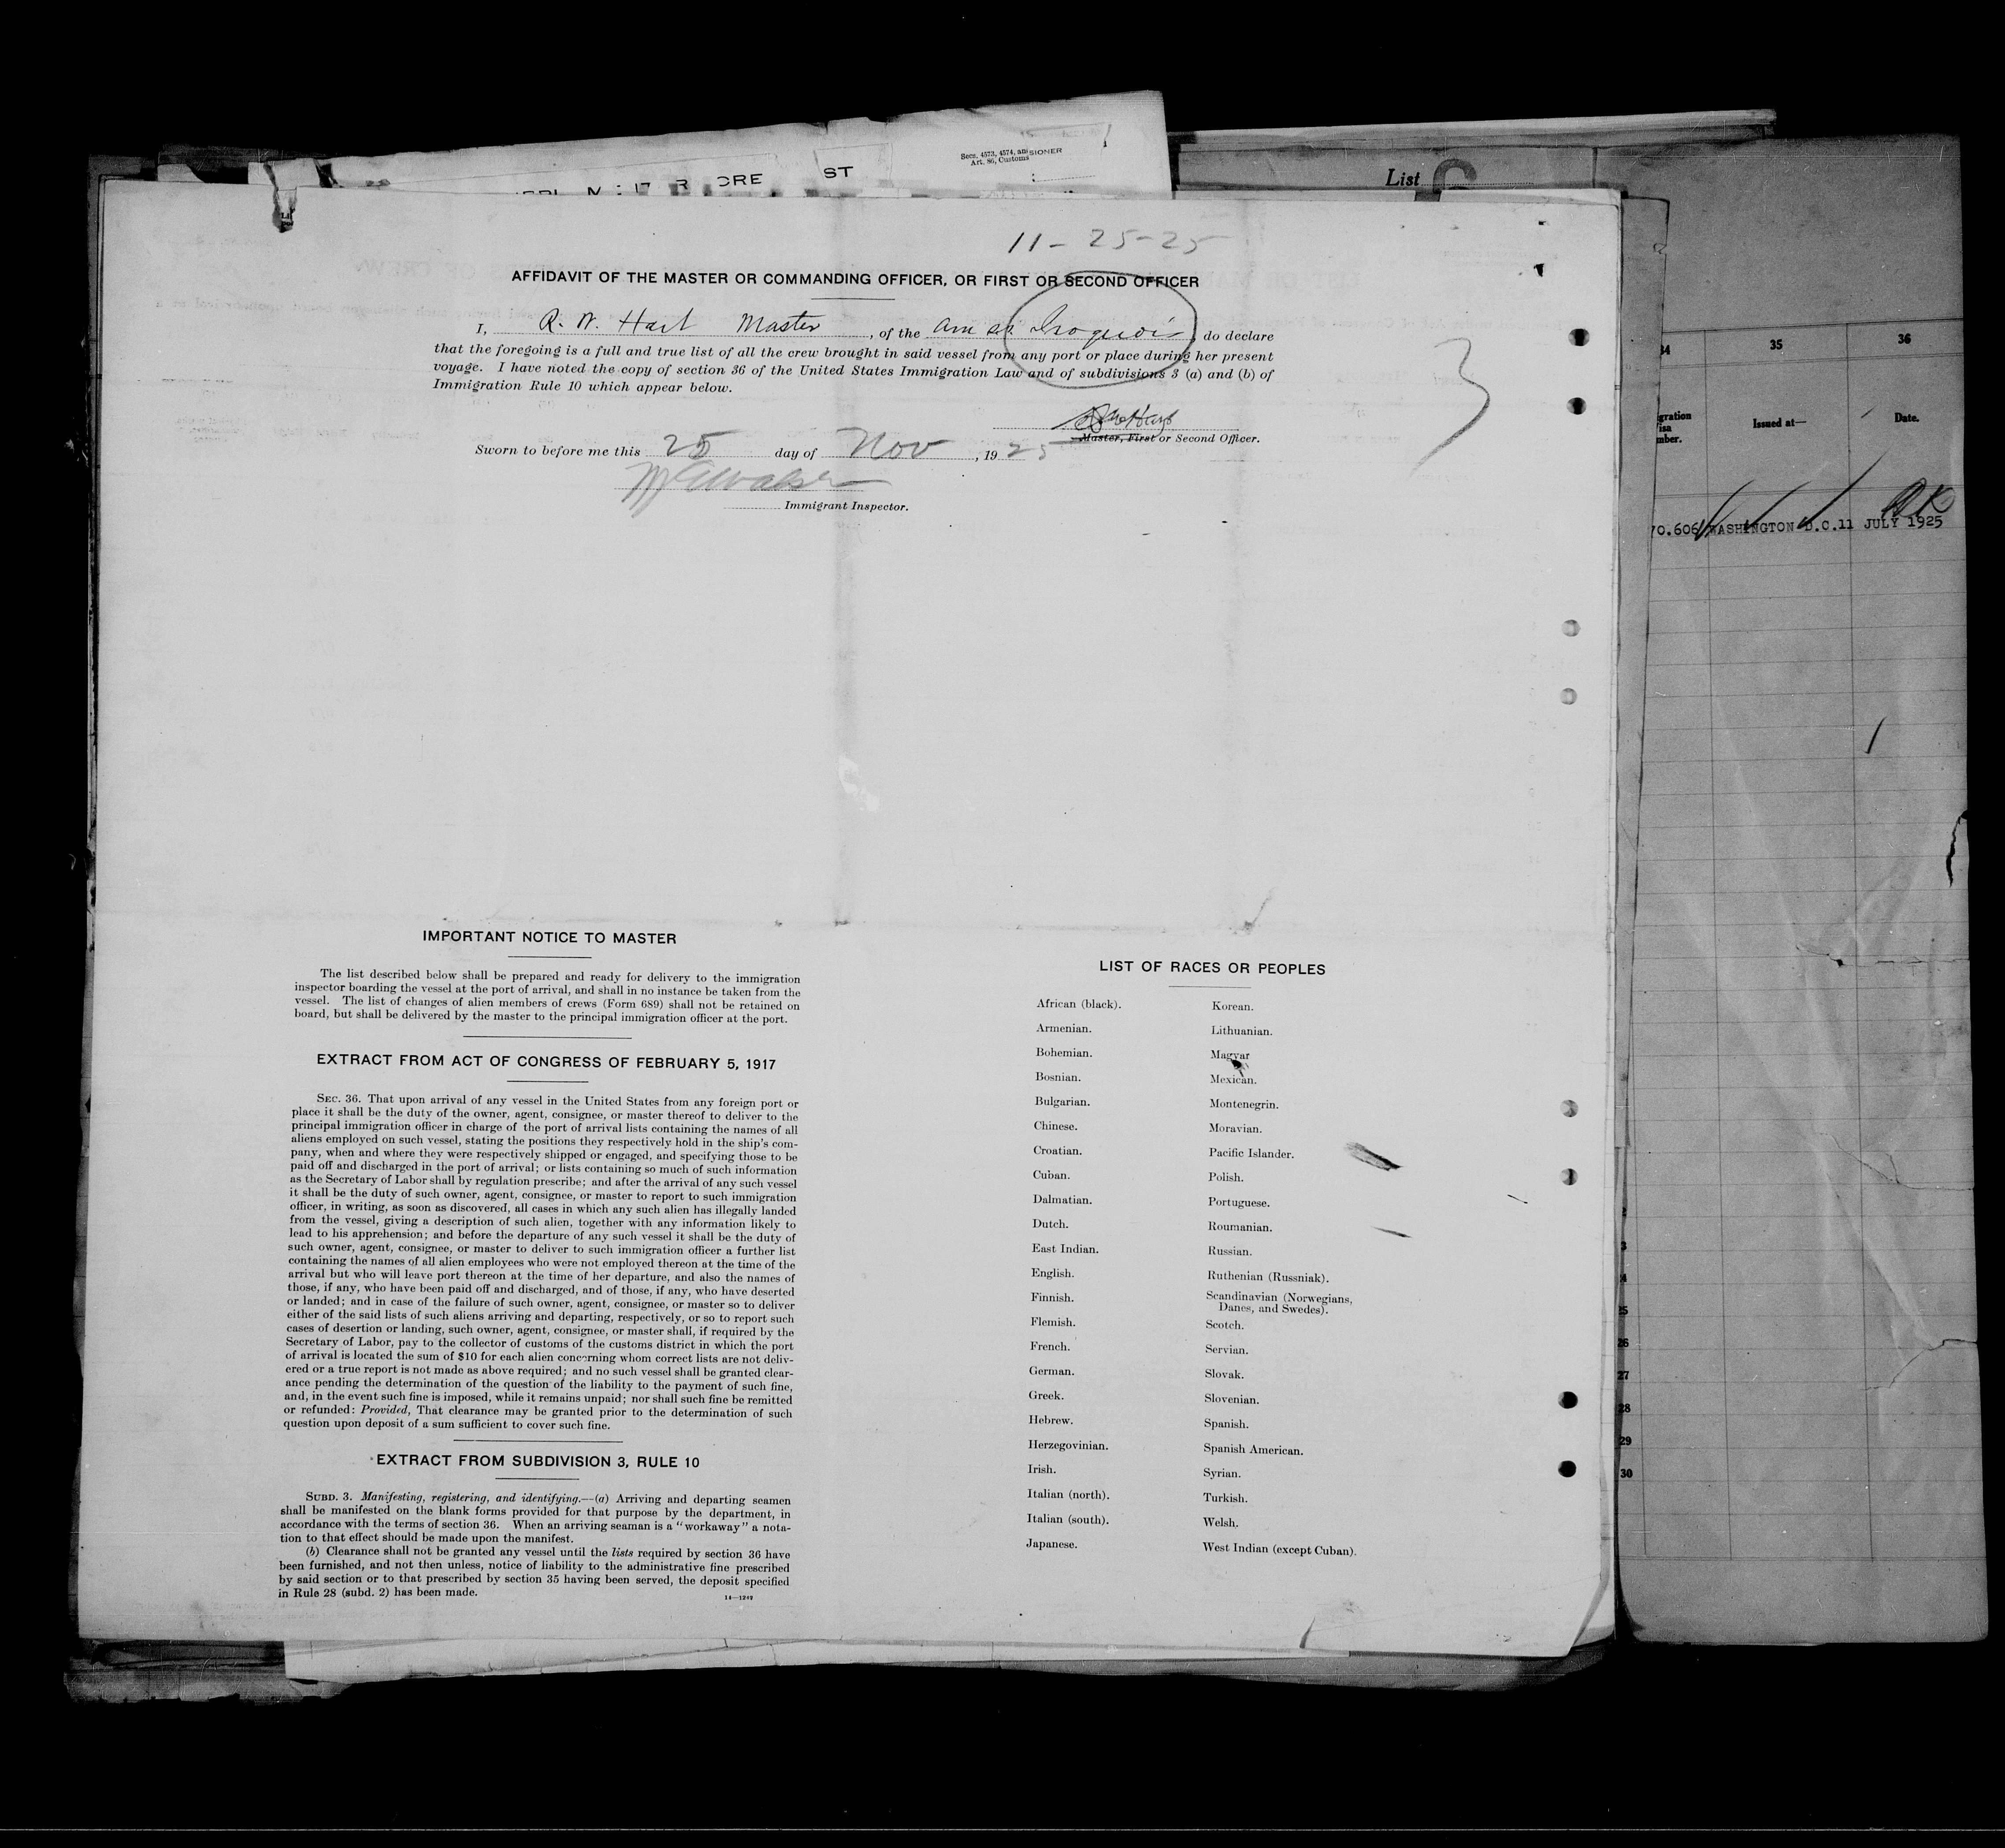 Secs. 4573, 4574, an SIONER
Art. 86, Customs
ORE ST
List
11-25-25
AFFIDAVIT OF THE MASTER OR COMMANDING OFFICER, OR FIRST OR SECOND OFFICER
I, R. W. Hart Master, of the Am ss Iroquois, do declare
that the foregoing is a full and true list of all the crew brought in said vessel from any port or place during her present
voyage. I have noted the copy of section 36 of the United States Immigration Law and of subdivisions 3 (a) and (b) of
Immigration Rule 10 which appear below.
Master, First or Second Officer.
Sworn to before me this 25 day of Nov, 1925
Immigrant Inspector.
3
34 35 36
gration
isa
mber.
Issued at—
Date.
70.606 WASHINGTON D.C. 11 JULY 1925
IMPORTANT NOTICE TO MASTER
The list described below shall be prepared and ready for delivery to the immigration
inspector boarding the vessel at the port of arrival, and shall in no instance be taken from the
vessel. The list of changes of alien members of crews (Form 689) shall not be retained on
board, but shall be delivered by the master to the principal immigration officer at the port.
EXTRACT FROM ACT OF CONGRESS OF FEBRUARY 5, 1917
SEC. 36. That upon arrival of any vessel in the United States from any foreign port or
place it shall be the duty of the owner, agent, consignee, or master thereof to deliver to the
principal immigration officer in charge of the port of arrival lists containing the names of all
aliens employed on such vessel, stating the positions they respectively hold in the ship's com-
pany, when and where they were respectively shipped or engaged, and specifying those to be
paid off and discharged in the port of arrival; or lists containing so much of such information
as the Secretary of Labor shall by regulation prescribe; and after the arrival of any such vessel
it shall be the duty of such owner, agent, consignee, or master to report to such immigration
officer, in writing, as soon as discovered, all cases in which any such alien has illegally landed
from the vessel, giving a description of such alien, together with any information likely to
lead to his apprehension; and before the departure of any such vessel it shall be the duty of
such owner, agent, consignee, or master to deliver to such immigration officer a further list
containing the names of all alien employees who were not employed thereon at the time of the
arrival but who will leave port thereon at the time of her departure, and also the names of
those, if any, who have been paid off and discharged, and of those, if any, who have deserted
or landed; and in case of the failure of such owner, agent, consignee, or master so to deliver
either of the said lists of such aliens arriving and departing, respectively, or so to report such
cases of desertion or landing, such owner, agent, consignee, or master shall, if required by the
Secretary of Labor, pay to the collector of customs of the customs district in which the port
of arrival is located the sum of $10 for each alien concerning whom correct lists are not deliv-
ered or a true report is not made as above required; and no such vessel shall be granted clear-
ance pending the determination of the question of the liability to the payment of such fine,
and, in the event such fine is imposed, while it remains unpaid; nor shall such fine be remitted
or refunded: Provided, That clearance may be granted prior to the determination of such
question upon deposit of a sum sufficient to cover such fine.
EXTRACT FROM SUBDIVISION 3, RULE 10
SUBD. 3. Manifesting, registering, and identifying.—(a) Arriving and departing seamen
shall be manifested on the blank forms provided for that purpose by the department, in
accordance with the terms of section 36. When an arriving seaman is a "workaway" a nota-
tion to that effect should be made upon the manifest.
(b) Clearance shall not be granted any vessel until the lists required by section 36 have
been furnished, and not then unless, notice of liability to the administrative fine prescribed
by said section or to that prescribed by section 35 having been served, the deposit specified
in Rule 28 (subd. 2) has been made.
14—1242
LIST OF RACES OR PEOPLES
African (black).
Armenian.
Bohemian.
Bosnian.
Bulgarian.
Chinese.
Croatian.
Cuban.
Dalmatian.
Dutch.
East Indian.
English.
Finnish.
Flemish.
French.
German.
Greek.
Hebrew.
Herzegovinian.
Irish.
Italian (north).
Italian (south).
Japanese.
Korean.
Lithuanian.
Magyar
Mexican.
Montenegrin.
Moravian.
Pacific Islander.
Polish.
Portuguese.
Roumanian.
Russian.
Ruthenian (Russniak).
Scandinavian (Norwegians,
Danes, and Swedes).
Scotch.
Servian.
Slovak.
Slovenian.
Spanish.
Spanish American.
Syrian.
Turkish.
Welsh.
West Indian (except Cuban).
25
26
27
28
29
30